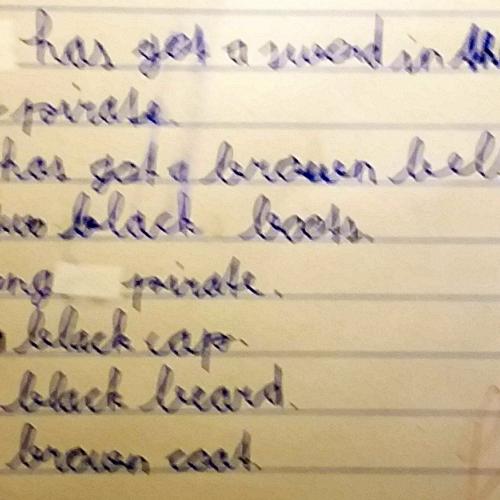 has got a sword in th
pirate.
has got a brown bel
two black boots.
ong pirate.
black cap.
black beard.
brown coat